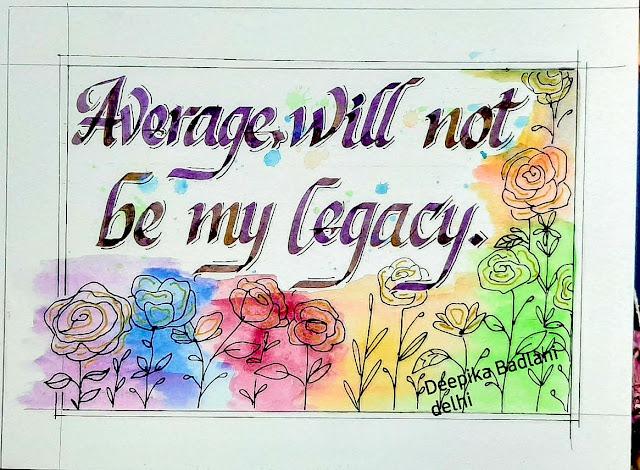 Average, will not
be my legacy.
Deepika Badlani
delhi